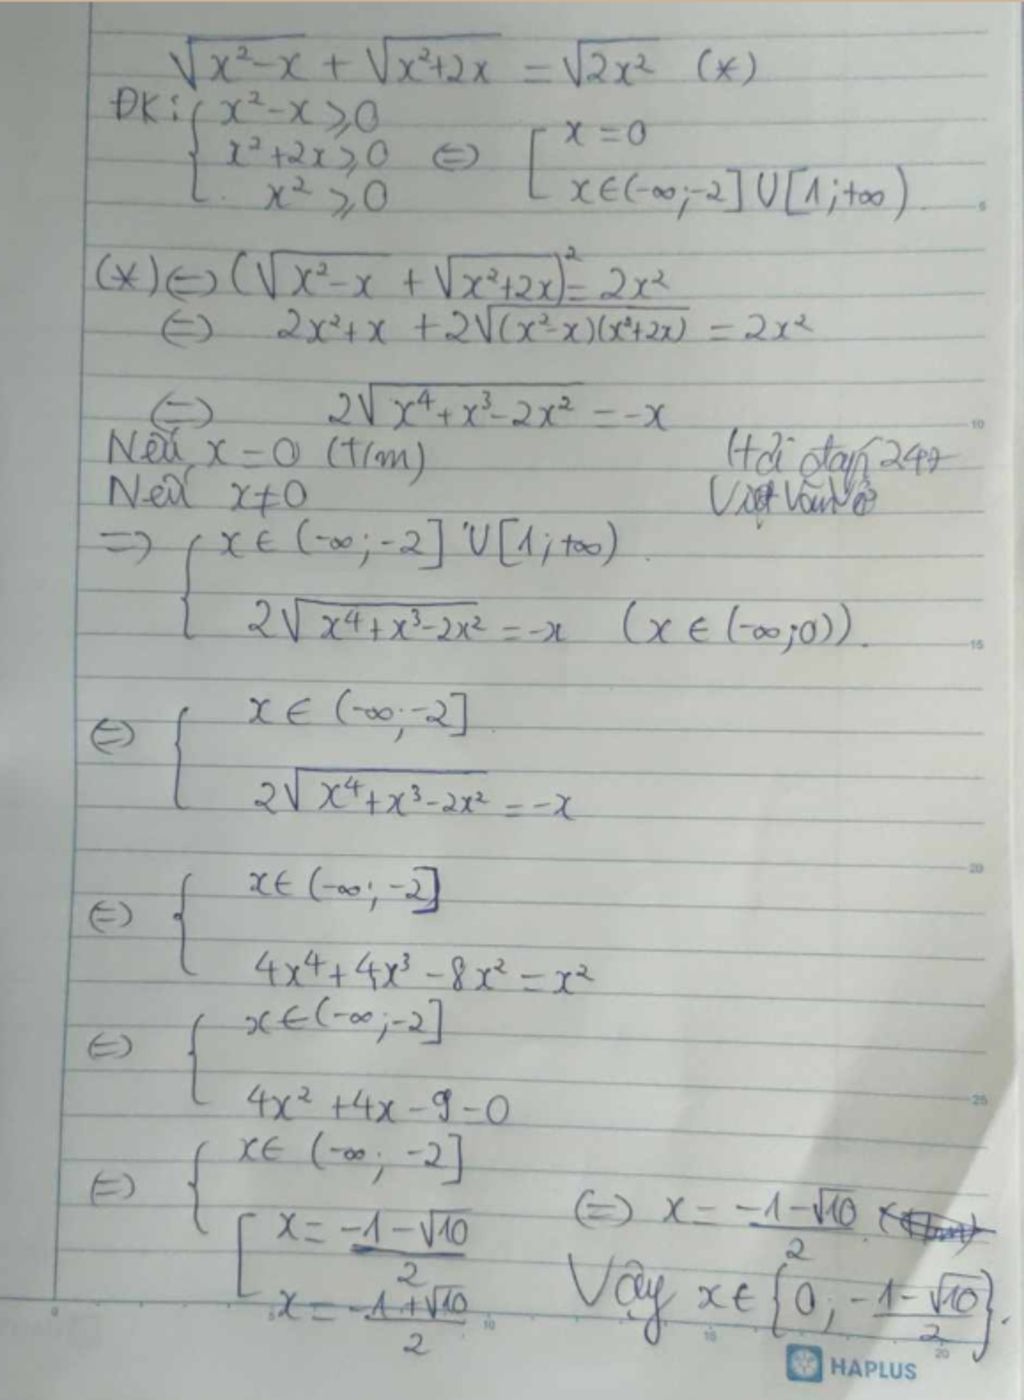 √(x²-x) + √(x²+2x) = √(2x²) (*)
ĐK: { x²-x ≥ 0
x²+2x ≥ 0 ⇔ [ x = 0
x² ≥ 0 x ∈ (-∞; -2] ∪ [1; +∞).
(*) ⇔ (√(x²-x) + √(x²+2x))² = 2x²
⇔ 2x² + x + 2√((x²-x)(x²+2x)) = 2x²
⇔ 2√(x⁴+x³-2x²) = -x
Nếu x = 0 (t/m)
Hỏi đáp 247
Nếu x ≠ 0
Việt Văn Vở
⇒ { x ∈ (-∞; -2] ∪ [1; +∞).
2√(x⁴+x³-2x²) = -x (x ∈ (-∞; 0)).
⇔ { x ∈ (-∞; -2]
2√(x⁴+x³-2x²) = -x
⇔ { x ∈ (-∞; -2]
4x⁴ + 4x³ - 8x² = x²
⇔ { x ∈ (-∞; -2]
4x² + 4x - 9 = 0
⇔ { x ∈ (-∞; -2]
[ x = (-1-√10)/2 ⇔ x = (-1-√10)/2.
x = (-1+√10)/2 Vậy x ∈ {0; (-1-√10)/2}.
HAPLUS